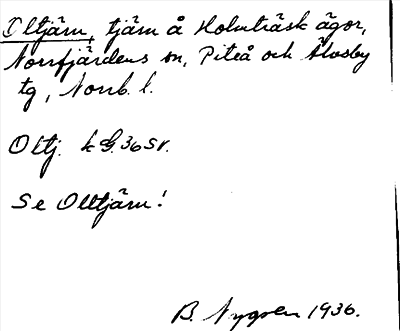 Iltjärn, tjärn å Holmträsk ägor,
Norrfjärdens sn, Piteå och Älvsby
tg, Norrb. l.
Oltj. k G. 36 SV.
Se Olltjärn!
B. Nygren 1936.